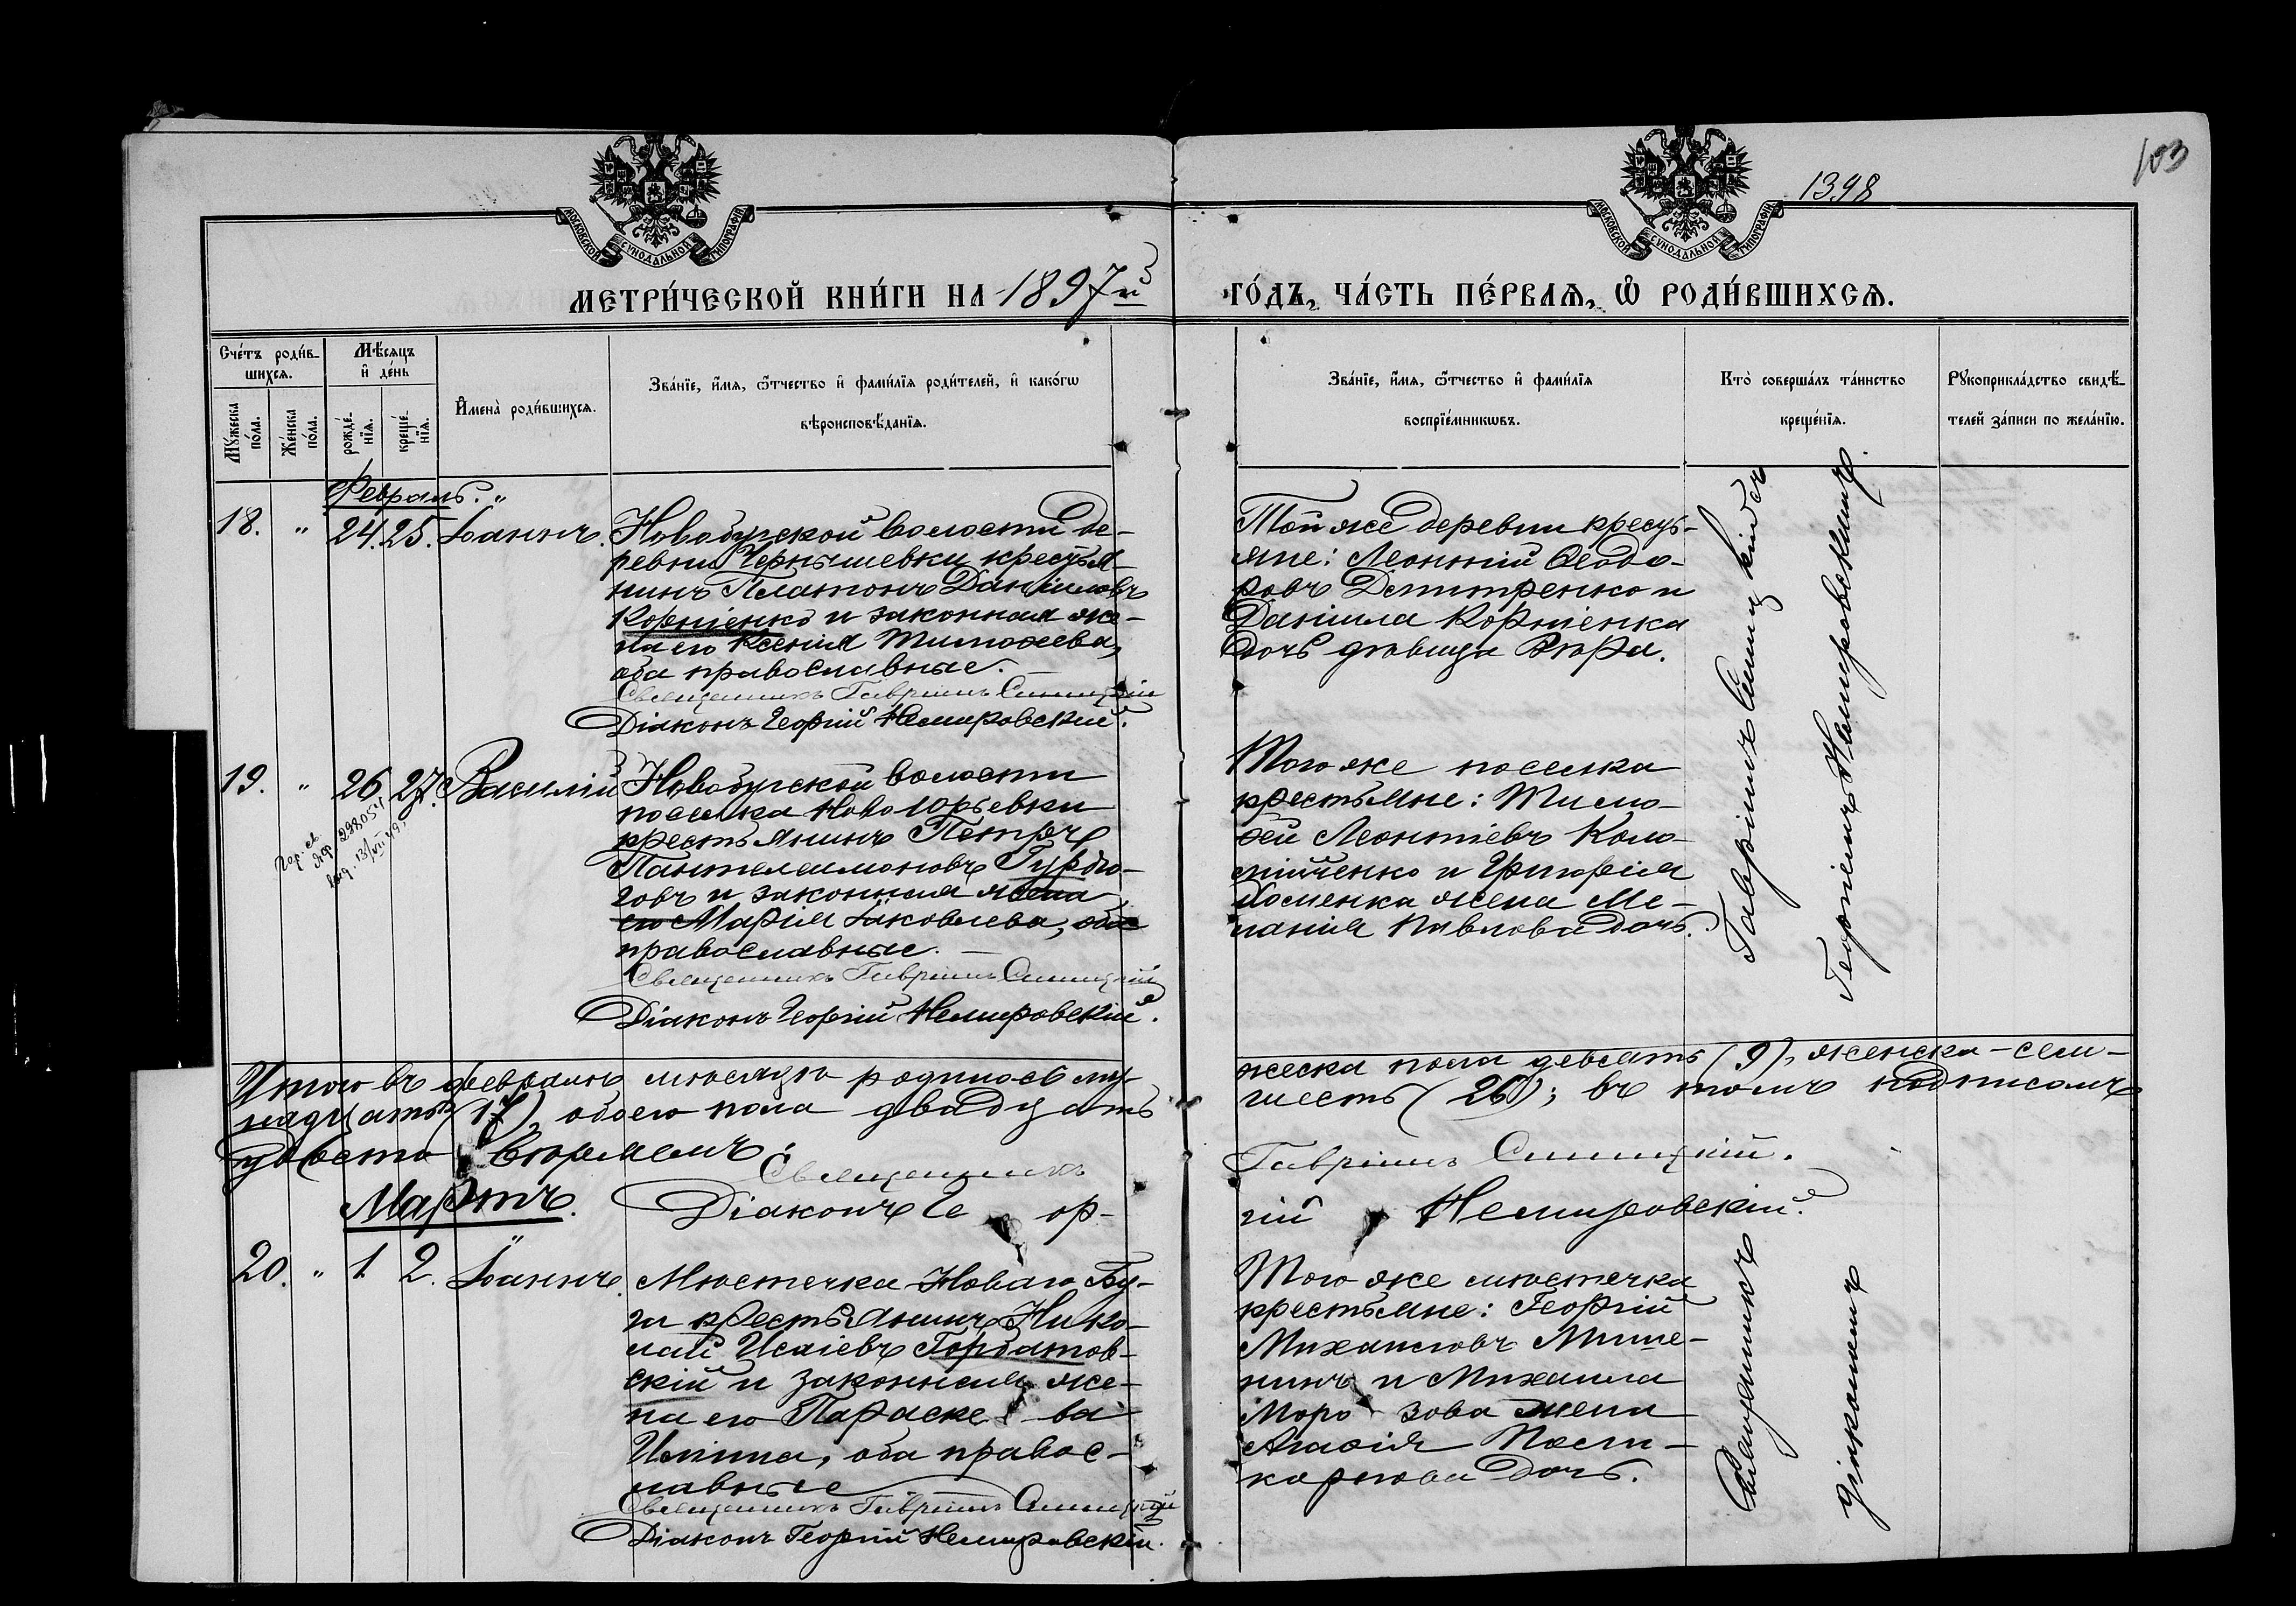 103
1398
МОСКОВСКОЙ СУНОДАЛЬНОЙ ТИПОГРАФІИ
МОСКОВСКОЙ СУНОДАЛЬНОЙ ТИПОГРАФІИ
МЕТРИ́ЧЕСКОЙ КНИ́ГИ НА 1897й
ГО́ДЪ, ЧА́СТЬ ПЕ́РВАѦ, Ѽ РОДИ́ВШИХСѦ.
Счéтъ роди́в-
шихсѧ.
Мѹ́жеска
по́ла.
Же́нска
по́ла.
Мѣ́сѧцъ
и҆ де́нь
рожде́-
нїѧ.
креще́-
нїѧ.
И҆мена̀ роди́вшихсѧ.
Зва́нїе, и҆́мѧ, ѻ҆́тчество и҆ фами́лїѧ роди́телей, и҆ како́гѡ
вѣроисповѣ́данїѧ.
Зва́нїе, и҆́мѧ, ѻ҆́тчество и҆ фами́лїѧ
воспрїе́мникѡвъ.
Кто̀ соверша́лъ та́инство
креще́нїѧ.
Рѹкоприкла́дство свидѣ́-
телей за́писи по жела́нїю.
Февраль.
18. " 24. 25. Іоаннъ.
Новобугской волости де-
ревни Чернышевки крестья-
нинъ Платонъ Даніиловъ
Корніенко и законная же-
на его Ксенія Тимоѳеева,
оба православные.
Священникъ Гавріилъ Синицкій
Діаконъ Георгій Немировскій.
Той же деревни кресть-
яне: Леонтій Ѳеодо-
ровъ Дмитренко и
Даніила Корніенка
дочь дѣвица Вѣра.
19. " 26 27. Василій
Гор. св.
выд. 13/VII 49
Новобугской волости
поселка Ново Юрьевки
крестьянинъ Петръ
Пантелеимоновъ Гурбо-
говъ и законная жена
его Марія Іаковлева, оба
православные.
Священникъ Гавріилъ Синицкій
Діаконъ Георгій Немировскій.
Того же поселка
крестьяне: Тимо-
ѳей Леонтіевъ Коло-
мійченко и Григорія
Хоменка жена Ме-
ланія Павлова дочь.
Священникъ Гавріилъ Синицкій съ
діакономъ Георгіемъ Немировскимъ.
Итого въ февралѣ мѣсяцѣ родилось му-
жеска пола девять (9), женска - сем-
надцать (17), обоего пола двадцать
шесть (26); въ томъ подписомъ
удостовѣряемъ:
Священникъ Гавріилъ Синицкій.
Діаконъ Георгій Немировскій.
Мартъ.
20. " 1 2. Іоаннъ.
Мѣстечка Новаго Бу-
га крестьянинъ Нико-
лай Исаіевъ Горбатов-
скій и законная же-
на его Параскева
Ильина, оба правос-
лавные
Священникъ Гавріилъ Синицкій
Діаконъ Георгій Немировскій.
Того же мѣстечка
крестьяне: Георгій
Михаиловъ Мише-
нинъ и Михаила
Морозова жена
Агаѳія Поли-
карпова дочь.